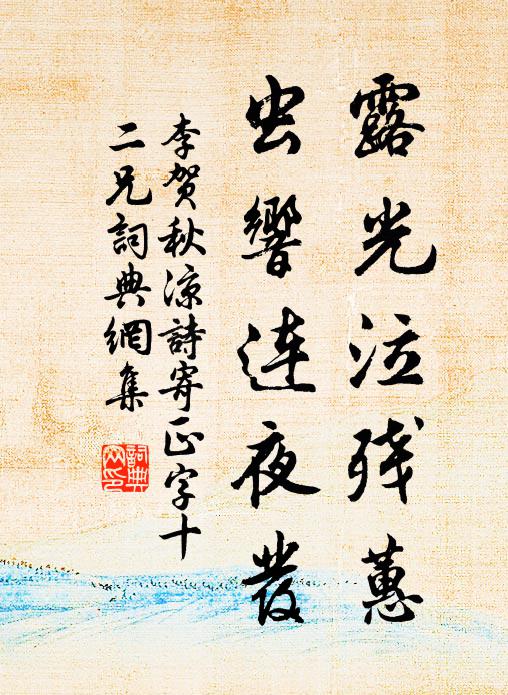 露光泣残蕙
虫響连夜發
李贺秋凉詩寄正字十
二兄詞典網集
詞典
网印